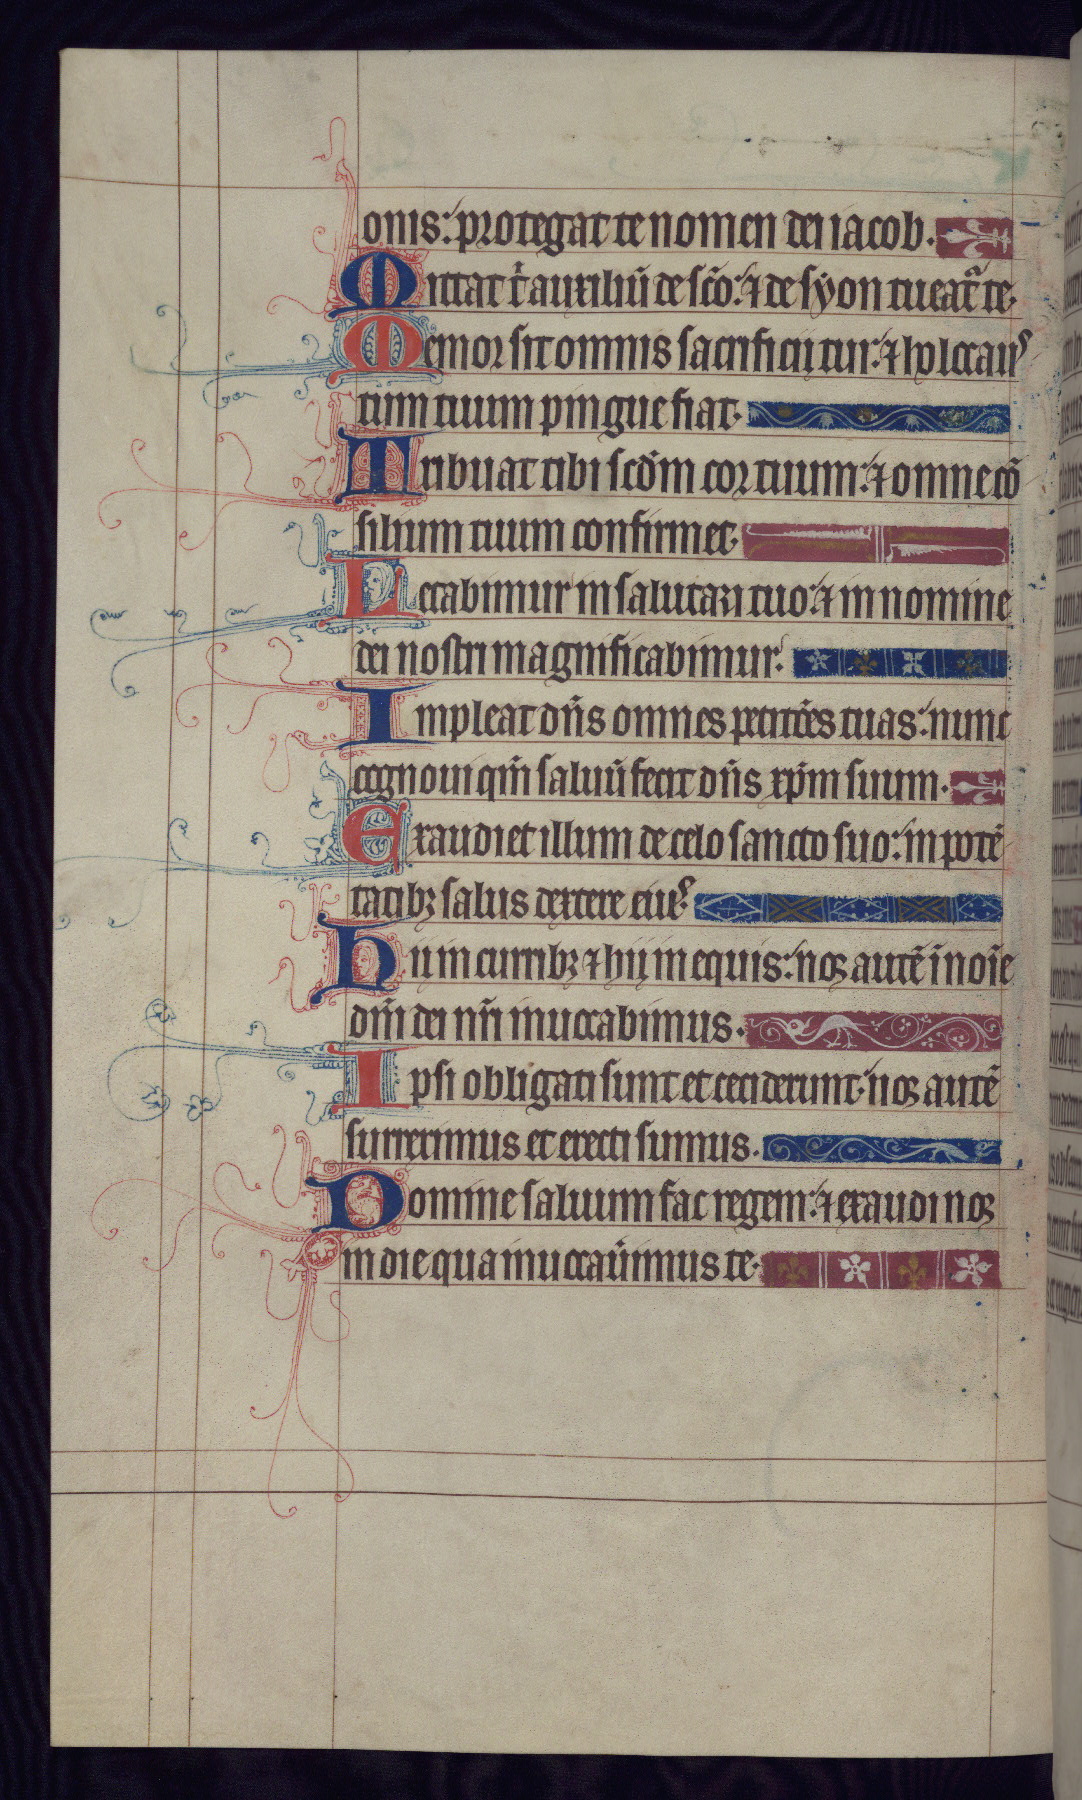 onis: protegat te nomen dei iacob.
Mittat t̉ auxiliū de sc̄o: ⁊ de syon tueat᷑ te.
Memor sit omnis sacrificij tui: ⁊ holocauꝰ
tum tuum pingue fiat.
Tribuat tibi scd̄m cor tuum: ⁊ omne cō
silium tuum confirmet.
Letabimur in salutari tuo: ⁊ in nomine
dei nostri magnificabimur.
Impleat dn̄s omnes petitōēs tuas: nunc
cognoui qm̄ saluū fecit dn̄s xp̄m suum.
Exaudiet illum de celo sancto suo: in potē
tatibꝫ salus dextere eiuꝰ
Hij in curribꝫ ⁊ hij in equis: nos autē ī noīe
dn̄i dei nr̄i inuocabimus.
Ipsi obligati sunt et ceciderunt: nos autē
surreximus et erecti sumus.
Domine saluum fac regem: ⁊ exaudi nos
in die qua inuocauīmus te.